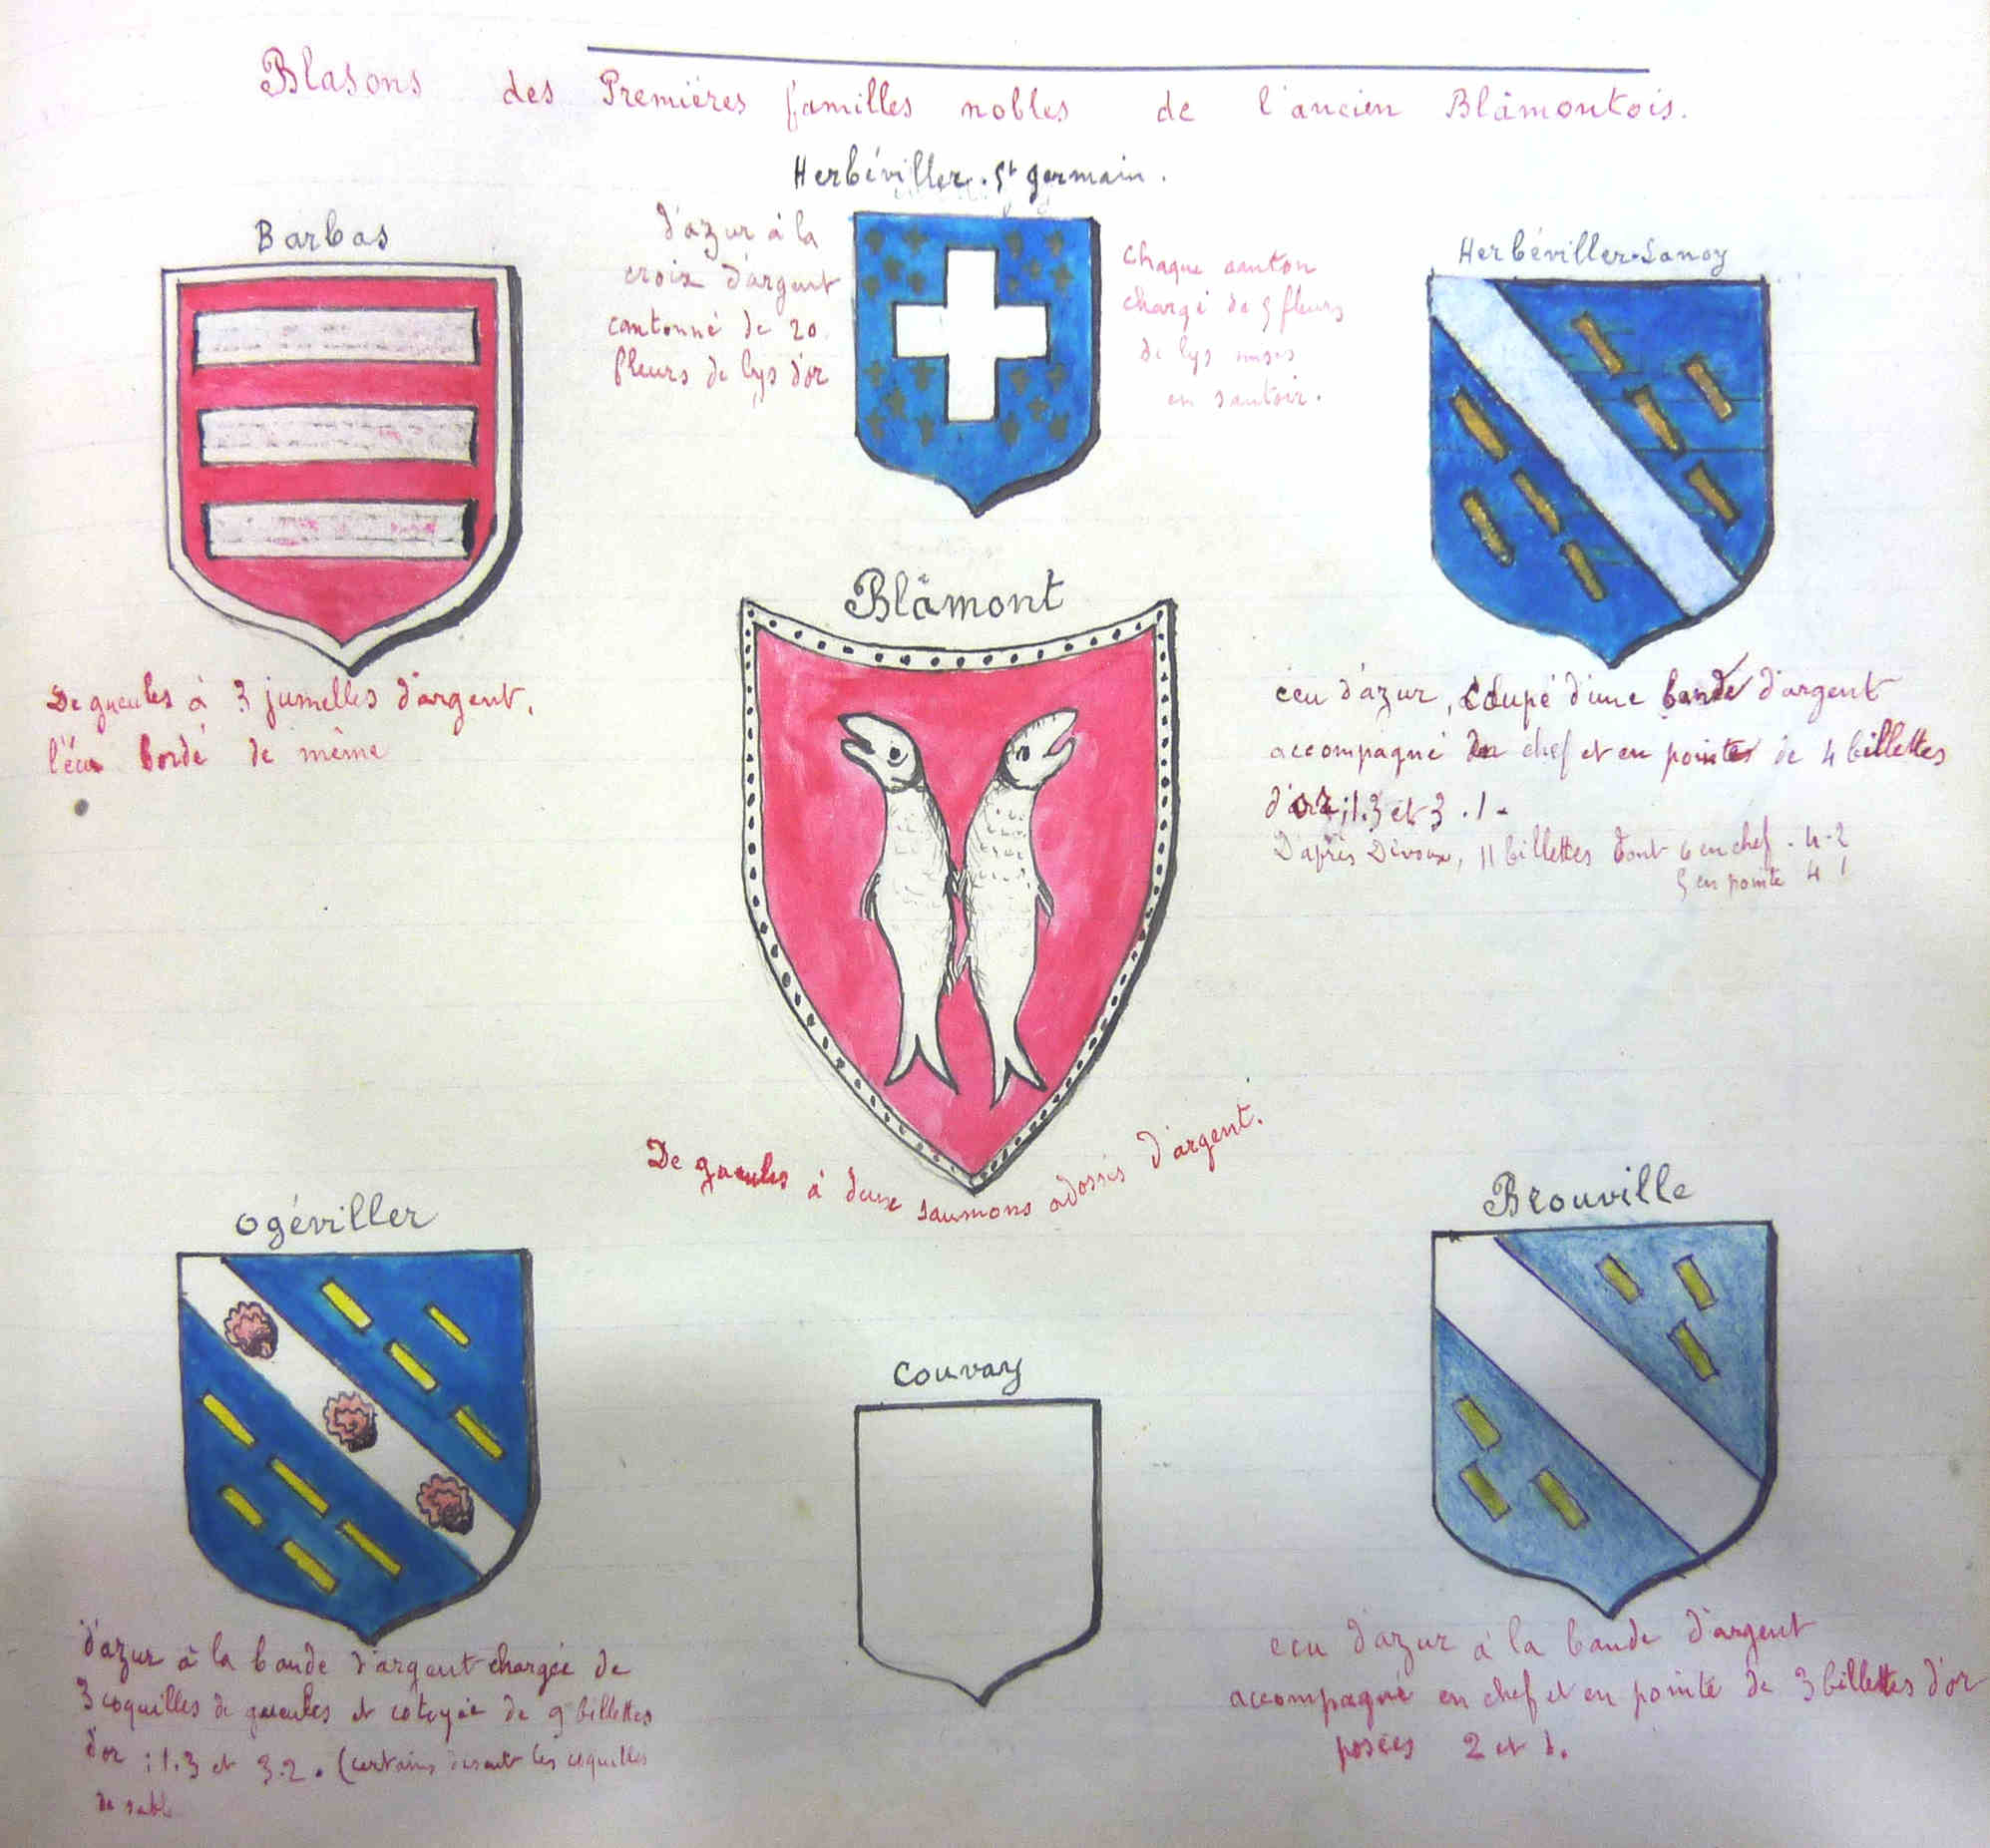 Blasons des Premières familles nobles de l'ancien Blâmontois.
Herbéviller. St germain.
Barbas
d'azur à la
croix d'argent
cantonné de 20
fleurs de lys d'or
Chaque canton
chargé de 5 fleurs
de lys mises
en sautoir.
Herbéviller-Lanoy
De gueules à 3 jumelles d'argent,
l'écu bordé de même
écu d'azur, coupé d'une bande d'argent
accompagné en chef et en pointe de 4 billettes
d'or; 1.3 et 3.1.
D'après Divoux, 11 billettes dont 6 en chef. 4-2
5 en pointe 4 1
Blâmont
De gueules à deux saumons adossés d'argent.
Ogéviller
d'azur à la bande d'argent chargée de
3 coquilles de gueules et cotoyée de 9 billettes
d'or; 1.3 et 3.2. (certains disent les coquilles
de sable
Couvay
Brouville
ecu d'azur à la bande d'argent
accompagné en chef et en pointe de 3 billettes d'or
posées 2 et 1.